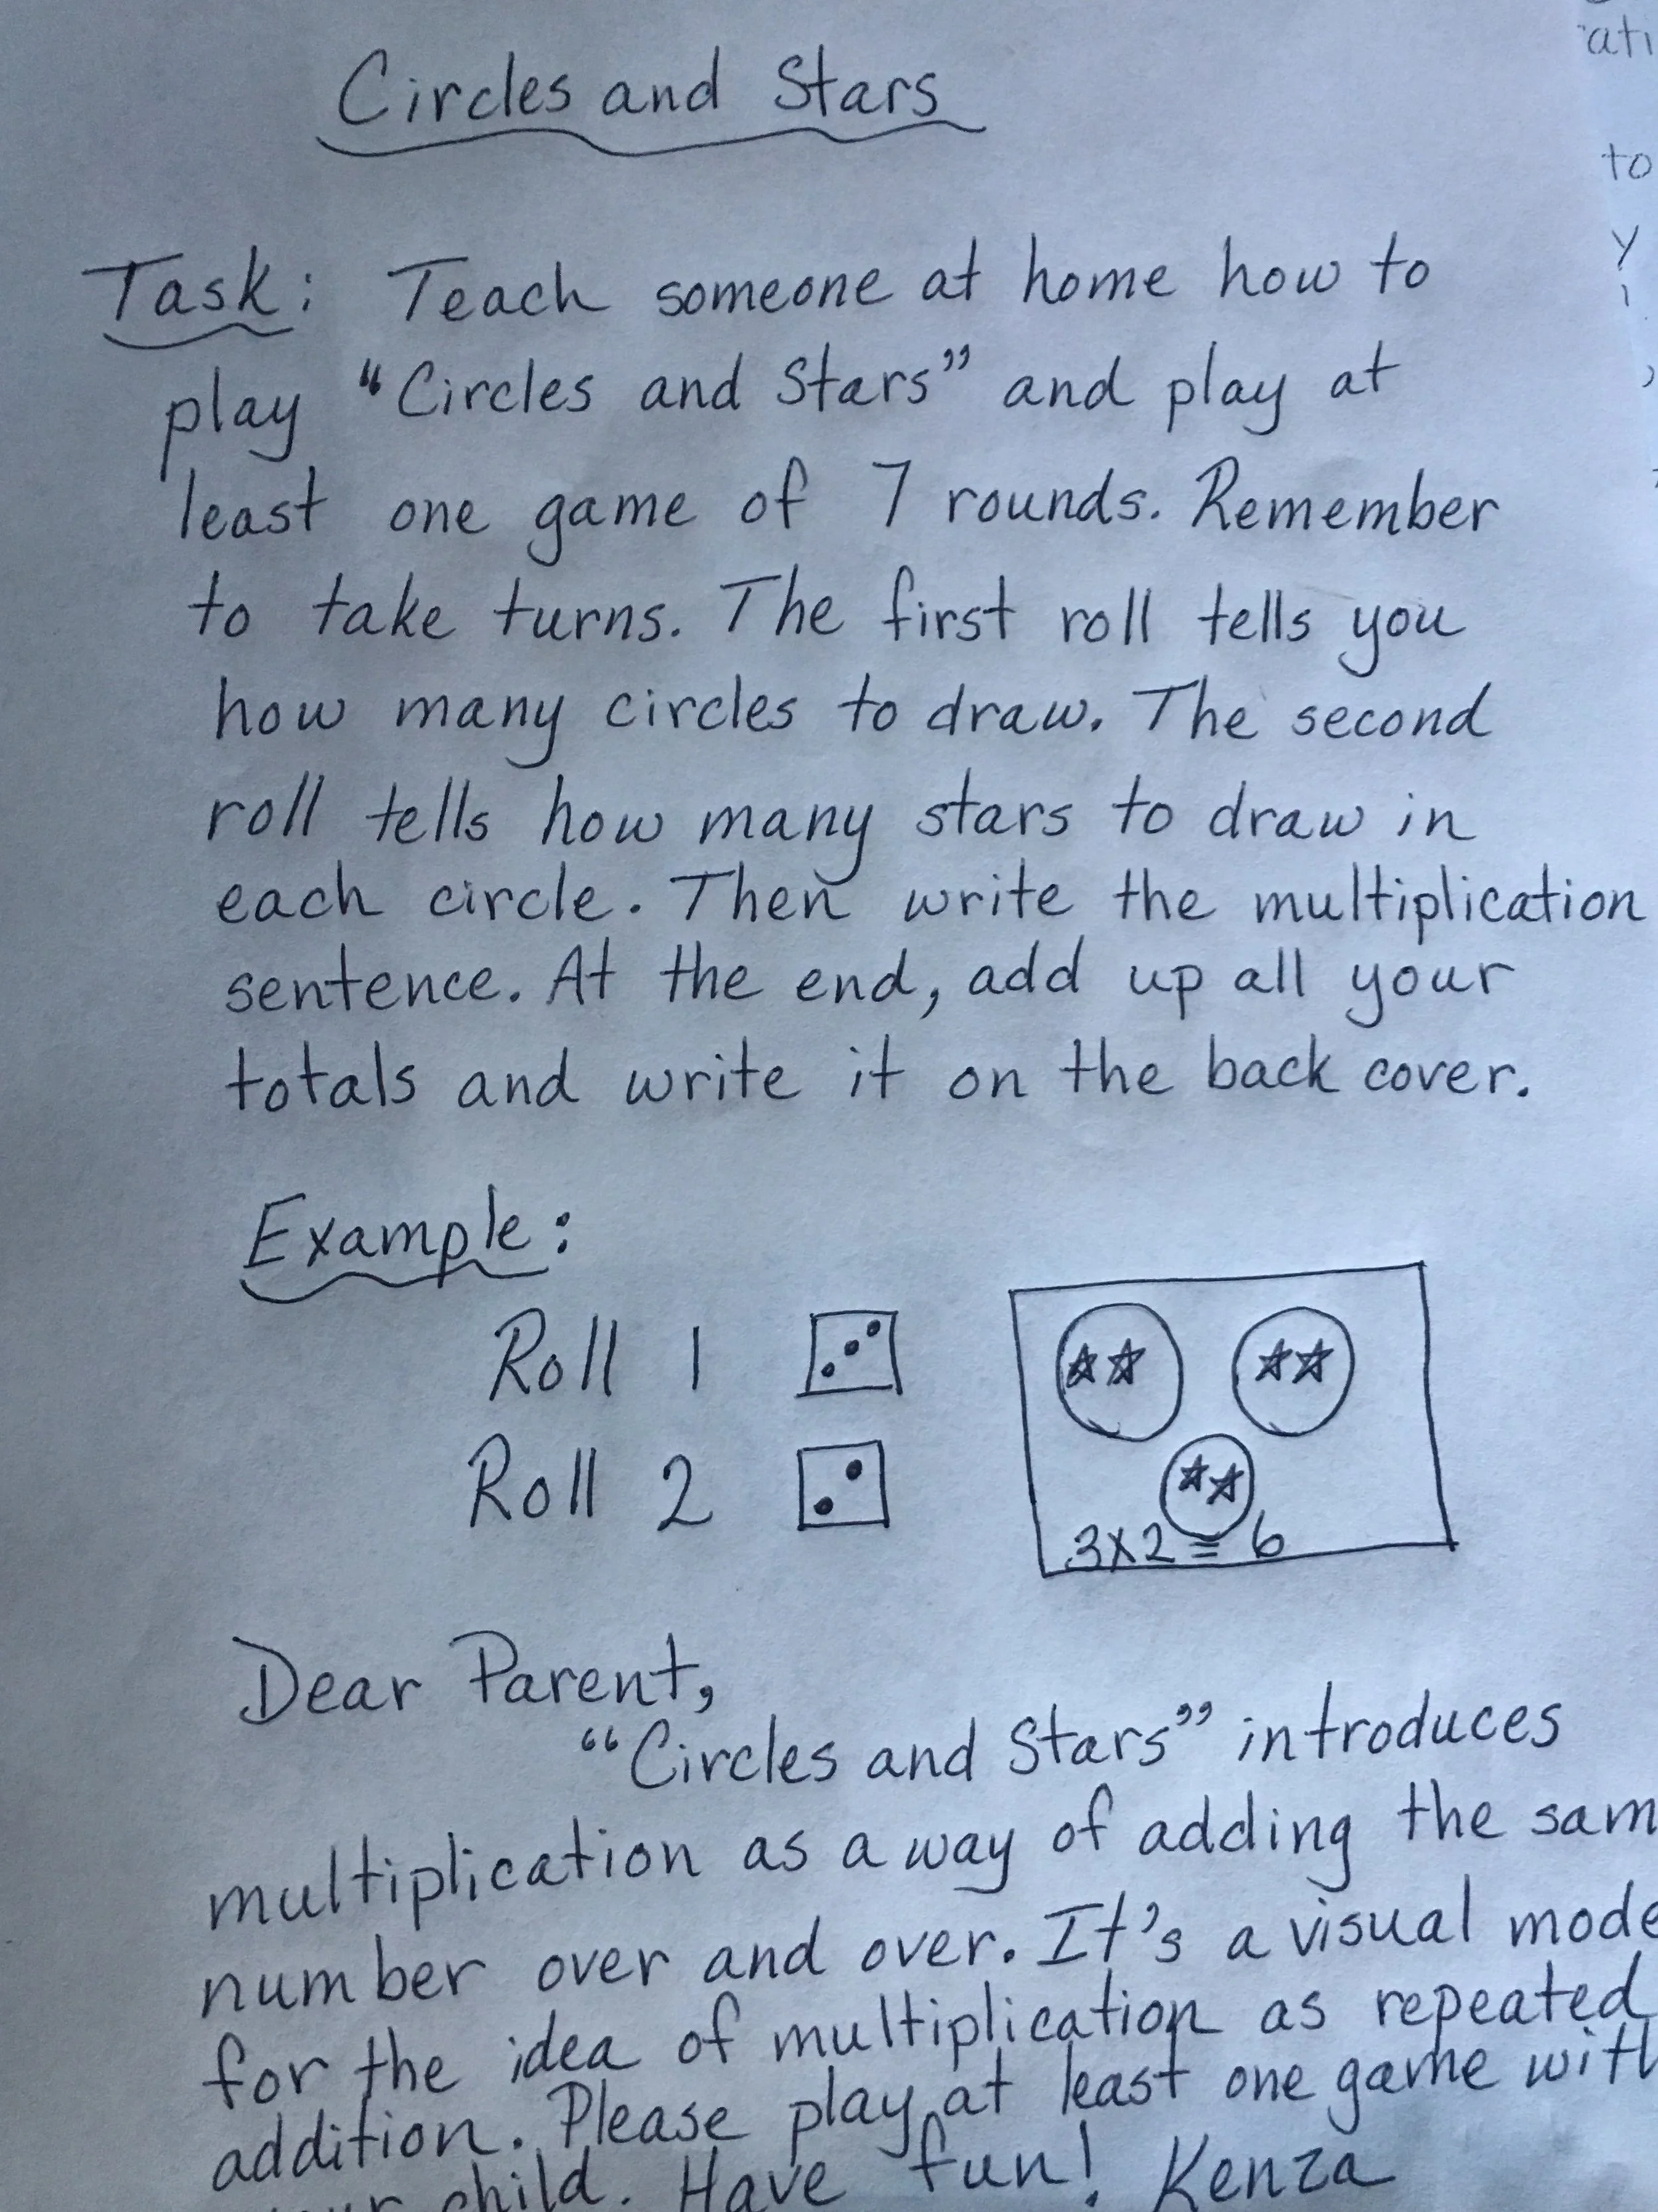 Circles and Stars
Task: Teach someone at home how to
play “Circles and Stars” and play at
least one game of 7 rounds. Remember
to take turns. The first roll tells you
how many circles to draw. The second
roll tells how many stars to draw in
each circle. Then write the multiplication
sentence. At the end, add up all your
totals and write it on the back cover.
Example:
Roll 1
Roll 2
3x2=6
Dear Parent,
“Circles and Stars” introduces
multiplication as a way of adding the sam
number over and over. It's a visual mode
for the idea of multiplication as repeated
addition. Please play at least one game with
child. Have fun! Kenza
to
y